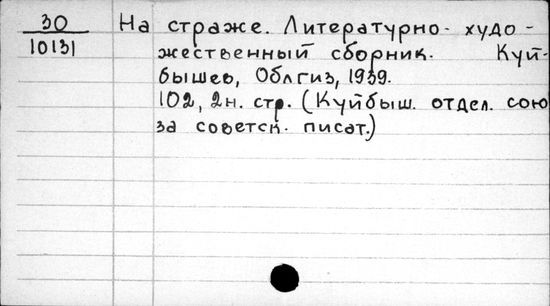 30 На страже. Литературно- худо-
10131 жественный сборник. Куй-
бышев, Облгиз, 1939.
102, 2н. стр. (Куйбыш. отдел. сою
за советск. писат.)